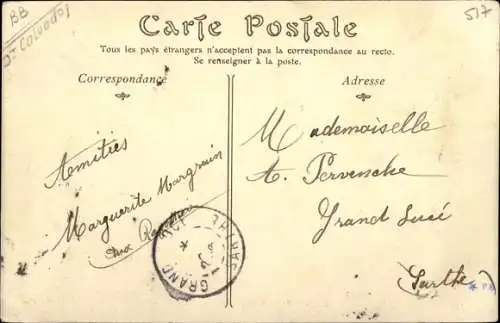 BB
Dt Calvados
517
Carte Postale
Tous les pays étrangers n'acceptent pas la correspondance au recto.
Se renseigner à la poste.
Correspondance
Adresse
Amitiés
Marguerite
Mademoiselle
A. Pervenche
Grand Lucé
Sarthe
GRAND LUCÉ
SARTHE